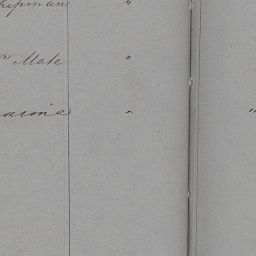 hipman "
m Mate "
arine " "